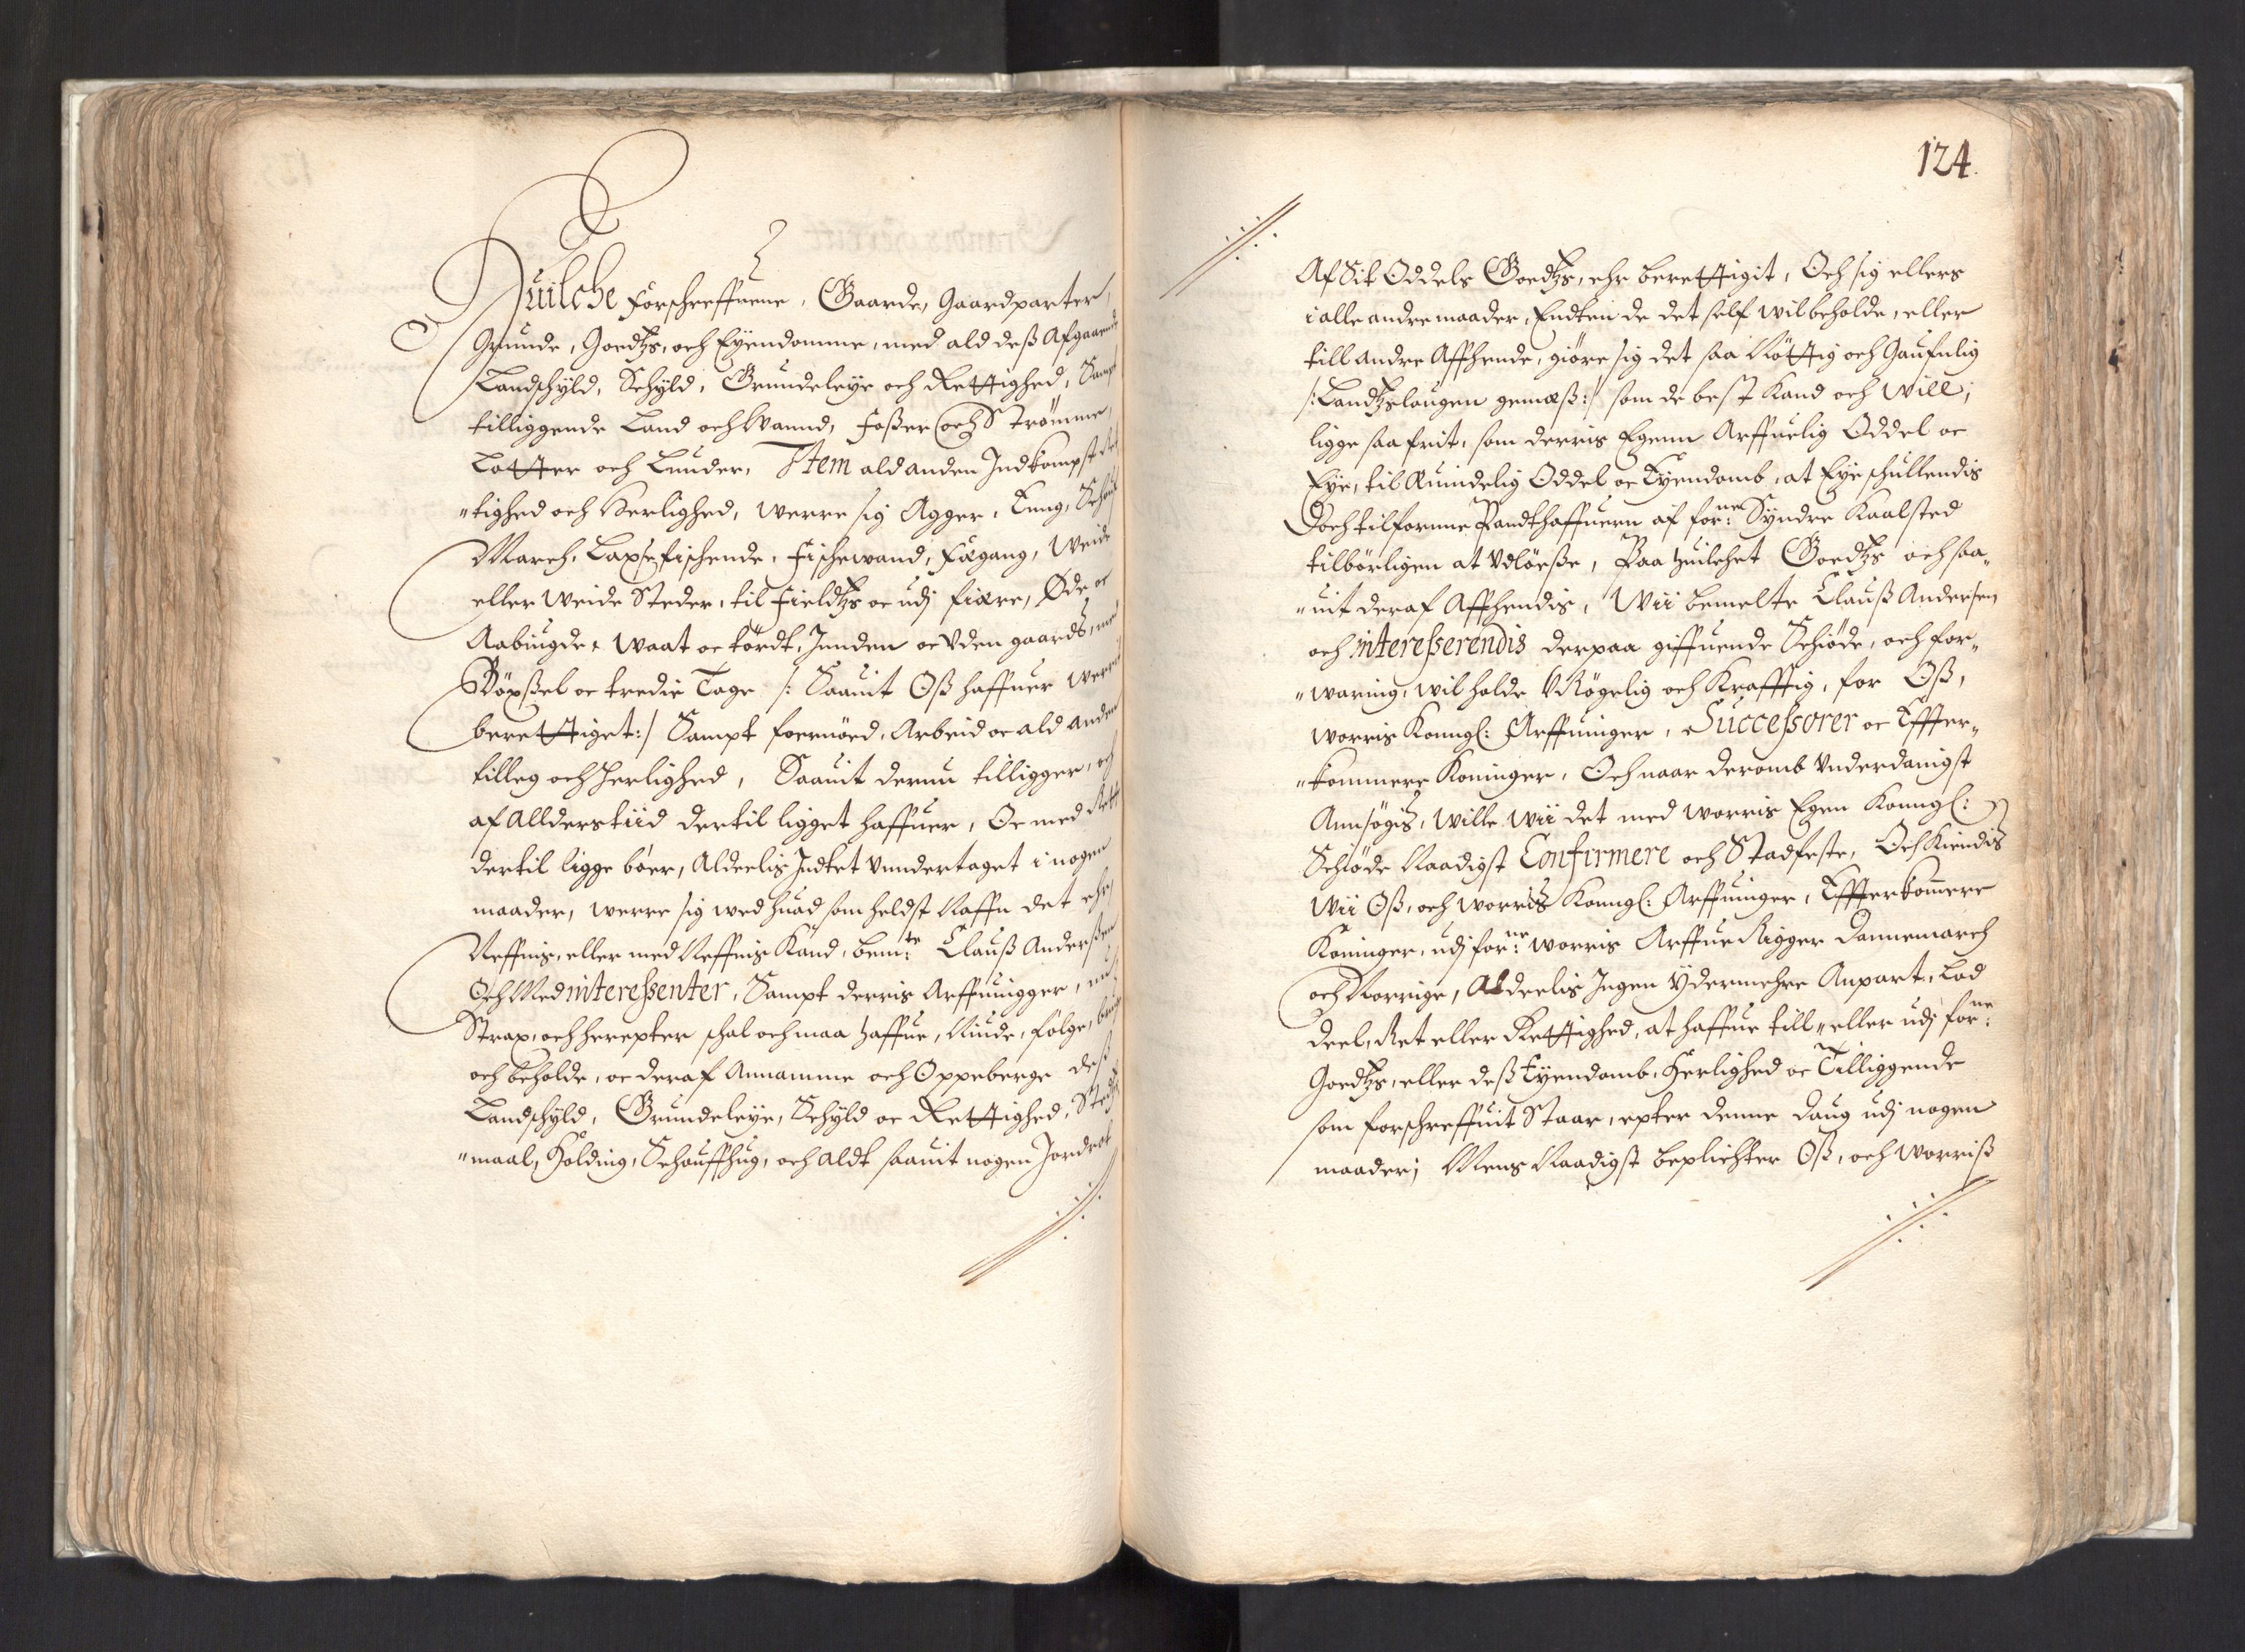 Huilche forschreffuene, Gaarde, Gaardparter,
Grunde, Goedtzs, och Eyendomme, med ald deß Afgaaende
Landschyld, Schyld, Grundeleye och Rettighed, Sampt
tilliggende Land och Wannd, Foßer och Strømme,
Lotter och Lunder, Item ald anden Indkompst
"tighed och Herlighed, werre sig Agger, Eng, Schouff
March, Laxefischende, Fischewand, Fægang, Weide
eller Weide Steder, til Fieldtzs oc udj fiære, Øde oc
Aabiugde, waat oc tördt, Innden oc Uden gaards,
Böxßel oc tredie Tage /: Saauit Oß haffuer werrit
berettiget :/ Sampt foernöed, Arbeid oc ald anden
tilleg och Herlighed, Saauit dernu tilligger, och
af Allderstiid dertil ligget haffuer, Oc med Rette
dertil ligge böer, Alderlis Indtet Unndertaget i nogen
maader, werre sig wed huad som heldst Naffn det ehr,
Neffnis, eller med Neffnis kand, bem:te Clauß Anderßen
Och Med interessenter, Sampt derris Arffuingger, nu
Strax, och herepter schal och maa haffue, Niude, følge, bruge
och beholde, oc deraf Annamme och Oppeberge deß
Landschyld, Grundeleye, Schyld oc Rettighed, Stedtz
"maal, Holding, Schouffhug, och aldt saauit nogen Jordrot
124.
Af Sit Oddels Goedtzs, ehr berettigit, Och sig ellers
i alle andre maader, Endten de det self wil beholde, eller
till andre Affhende, giöre sig det saa Nöttig och Gaufnlig
/: Landtzslougen gemæß :/ som de best Kand och will,
ligge saa frit, som derris Egenn Arffuelig Oddel oc
Eye, til Æuindelig Oddel oc Eyendomb, at Eye schullendis
Doch tilfornne Pandthaffuern af for:ne Syndre Kaalsted
tilbörligen at Udlöeße, Paa huilchet Goedtzs och saa"
"uit deraf Affhendis, Wii bemelte Clauß Andersen
och interesserendis derpaa giffuende Schiöde, och for"
"waring, wil holde URögelig och Krafftig, for Oß,
worris Konngl: Arffuinger, Successorer oc Effter"
"kommere Koninger, Och naar deromb Underdanigst
Annsögis, wille wii det med worris Egen Konngl:
Schiöde Naadigst Confirmere och Stadfeste, Och Kiendis
Wii Oß, och worris Konngl: Arffuinger, Effterkommere
Koninger, udj for:ne worris Arffue Rigger Dannemarch
och Norrige, Alderlis Ingen Ydermehre Anpart, Lod
Deel, Ret eller Rettighed, at haffue till" eller udj for:ne
Goedtzs, eller deß Eyendomb, Herlighed oc Tilliggende
som forschreffuit Staar, epter denne Daug udj nogen
maader; Mens Naadigst beplichter Oß, och worriß